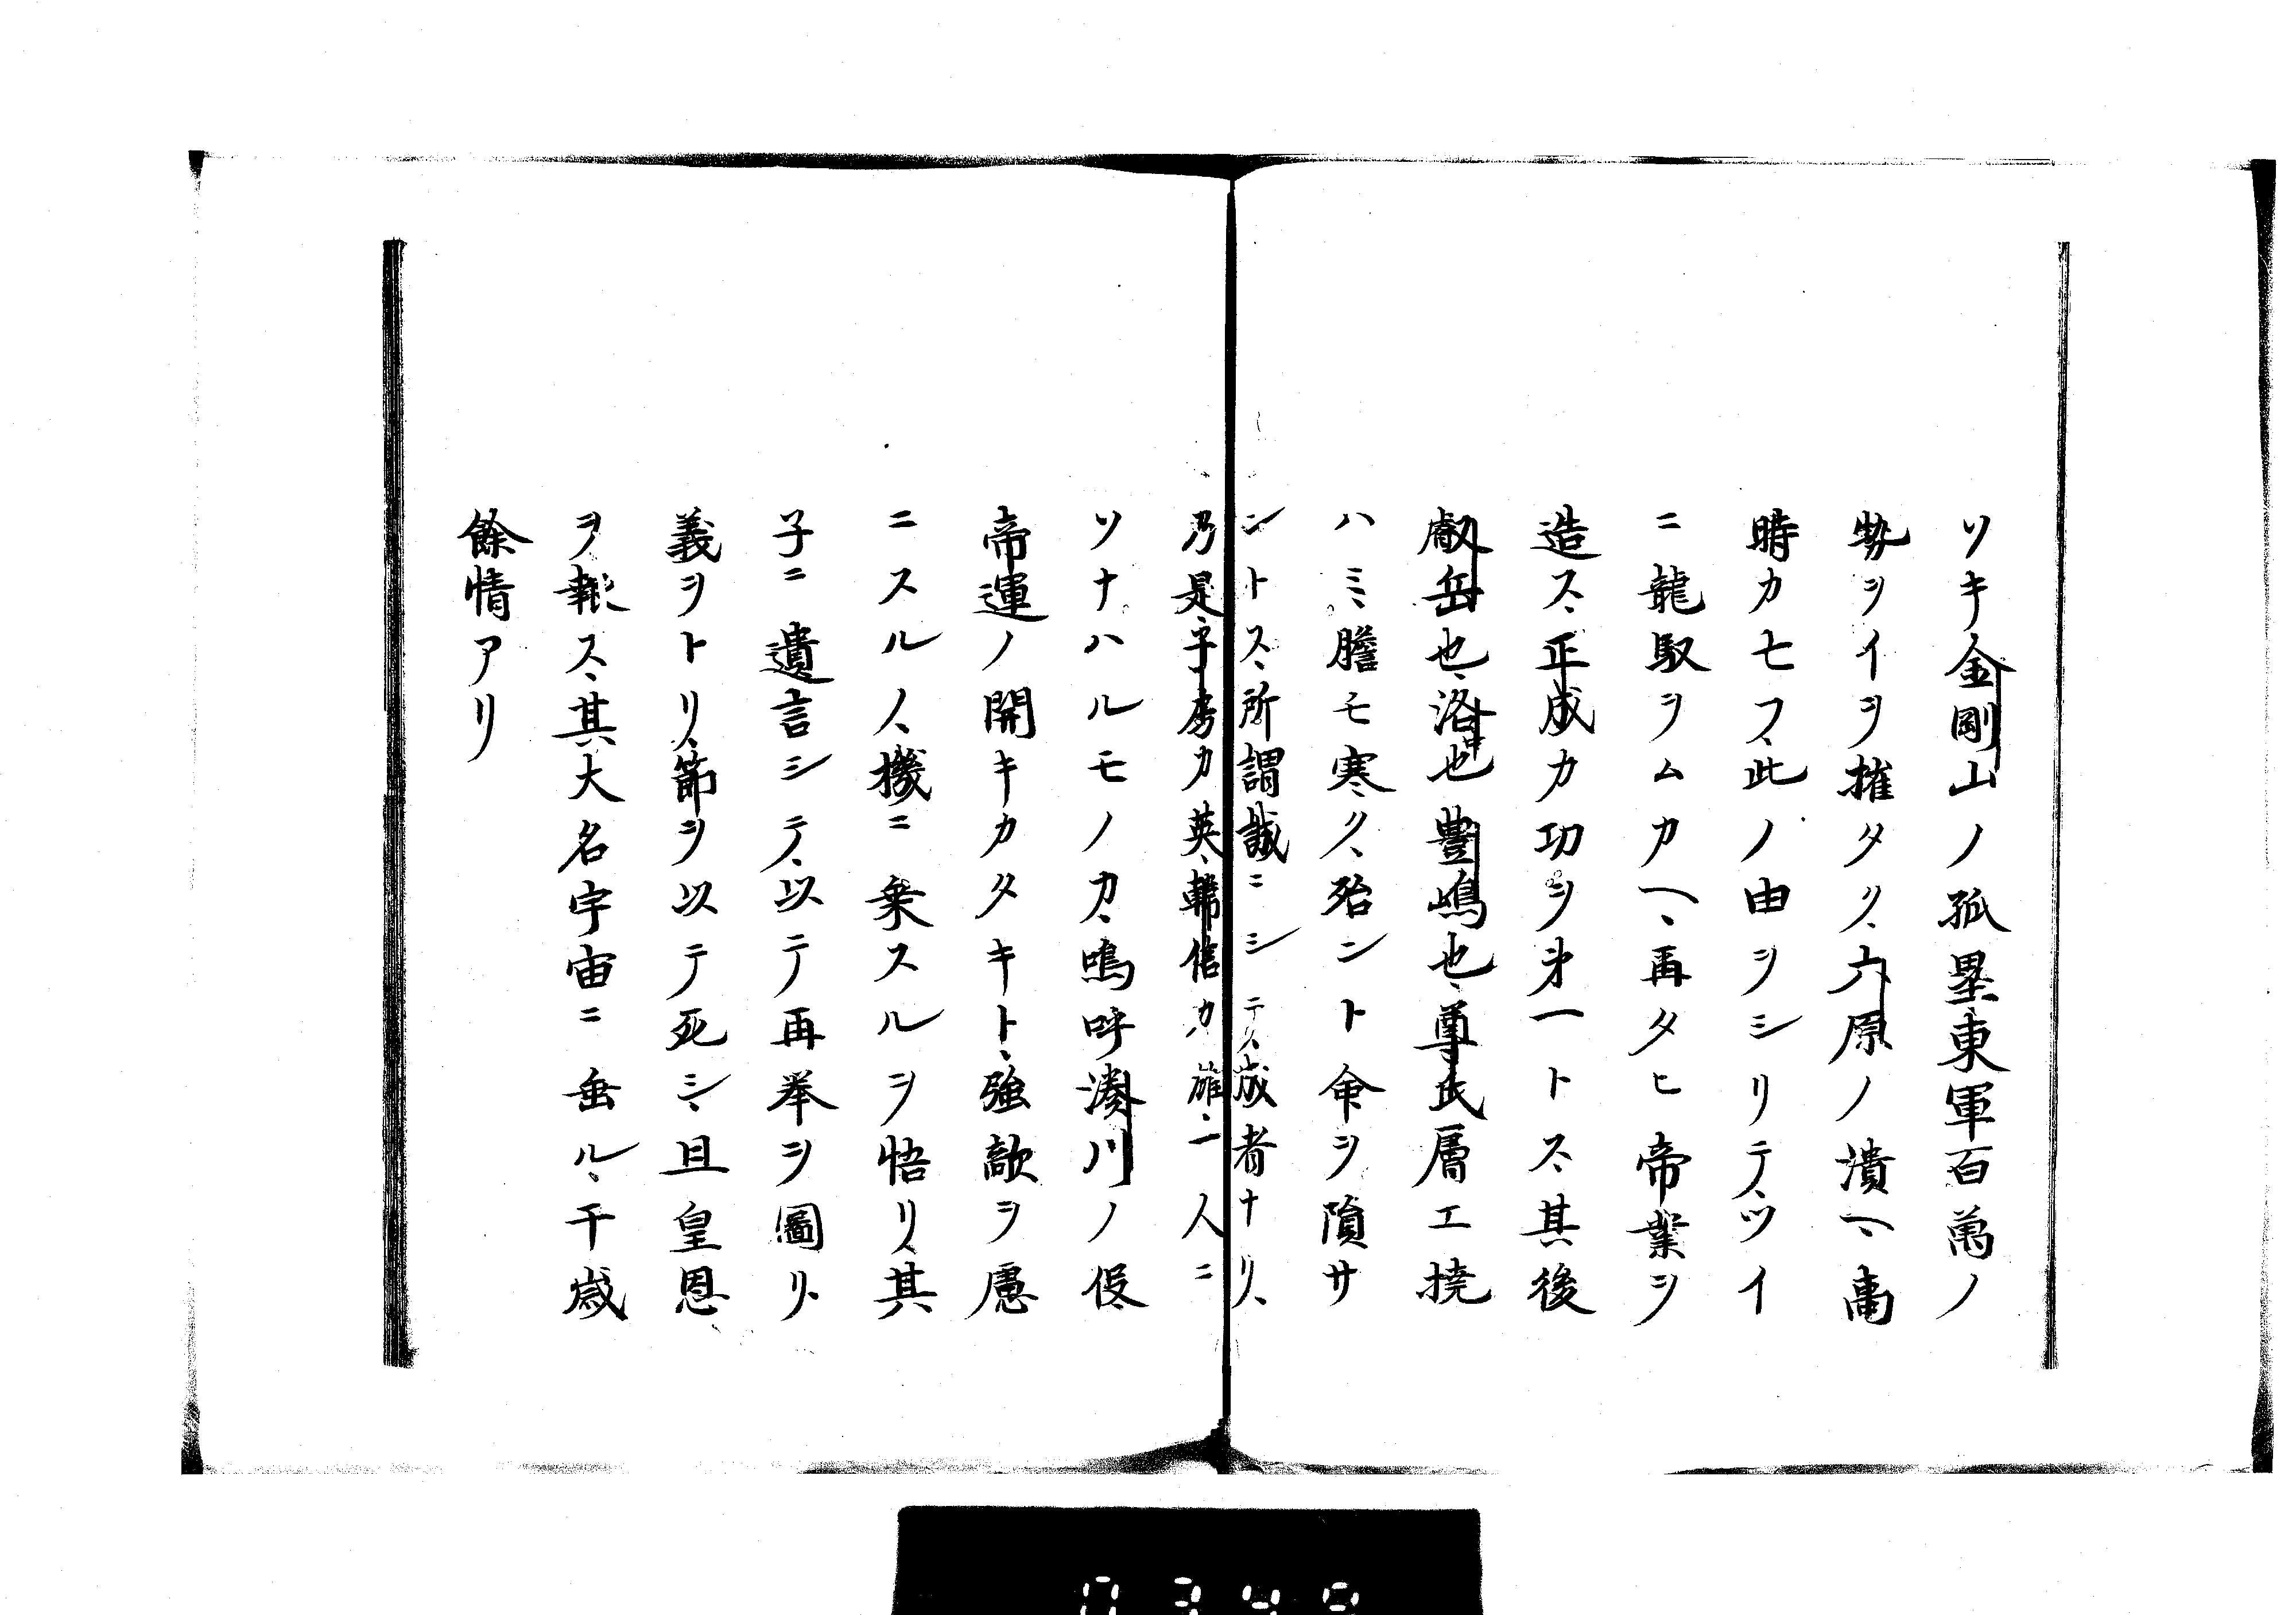 ソキ金剛山ノ孤塁東軍百萬ノ
勢ヲイヲ摧タク、六原ノ潰ヘ、萬
時カ七フ、此ノ由ヲシリテ、ツイ
ニ龍馭ヲムカヘ、再タヒ帝業ヲ
造ス、正成カ功ヲ㐧一トス、其後
叡岳也、洛中也豊嶋也、尊氏屬エ撓
ハミ、膽モ寒ク、殆ント命ヲ隕サ
ントス、所謂誠ニシテ、成者ナリ、
乃是、子房カ英、韓信カ雄、一人ニ
ソナハルモノカ、嗚呼湊川ノ役
帝運ノ開キカタキト、強敵ヲ慮
ニスルノ、機ニ乗スルヲ悟リ、其
子ニ遺言シテ、以テ再挙ヲ圖リ、
義ヲトリ、節ヲ以テ死シ、且皇恩
ヲ報ス、其大名宇宙ニ垂ル、千歳
餘情アリ
0349